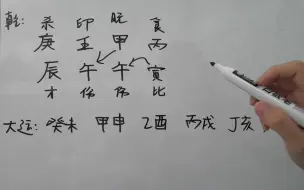 乾: 杀 印 日元 食
庚 壬 甲 丙
辰 午 午 寅
才 伤 伤 比
大运: 癸未 甲申 乙酉 丙戌 丁亥